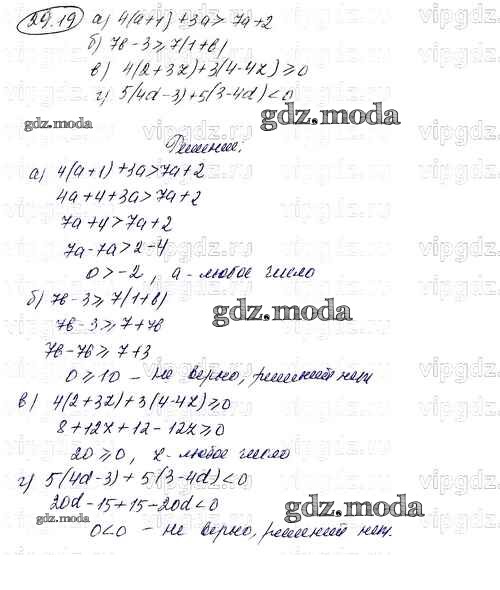 29.19 а) 4(a+1)+3a>7a+2
б) 7b-3⩾7(1+b)
в) 4(2+3z)+3(4-4z)⩾0
г) 5(4d-3)+5(3-4d)<0
gdz.moda
gdz.moda
Решение:
а) 4(a+1)+3a>7a+2
4a+4+3a>7a+2
7a+4>7a+2
7a-7a>2-4
0>-2, a-любое число
б) 7b-3⩾7(1+b)
gdz.moda
7b-3⩾7+7b
7b-7b⩾7+3
0⩾10 - не верно, решений нет
в) 4(2+3z)+3(4-4z)⩾0
8+12z+12-12z⩾0
20⩾0, z-любое число
г) 5(4d-3)+5(3-4d)<0
20d-15+15-20d<0
gdz.moda
gdz.moda
0<0 - не верно, решений нет.